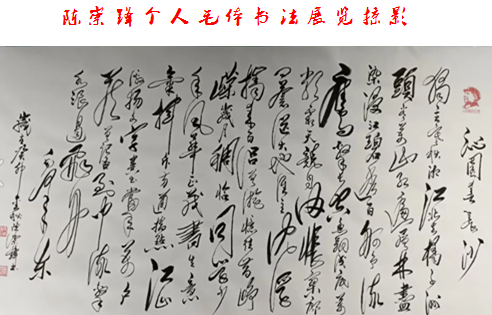 陈崇锋个人毛体书法展览掠影
沁园春长沙
独立寒秋湘江北去橘子洲
头看万山红遍层林尽
染漫江碧透百舸争流
鹰击长空鱼翔浅底万
类霜天竞自由怅寥廓
问苍茫大地谁主沉浮
携来百侣曾游忆往昔峥
嵘岁月稠恰同学少
年风华正茂书生意
气挥斥方遒指点江山
激扬文字粪土当年万户
侯曾记否到中流击
水浪遏飞舟
毛泽东
岁在癸卯